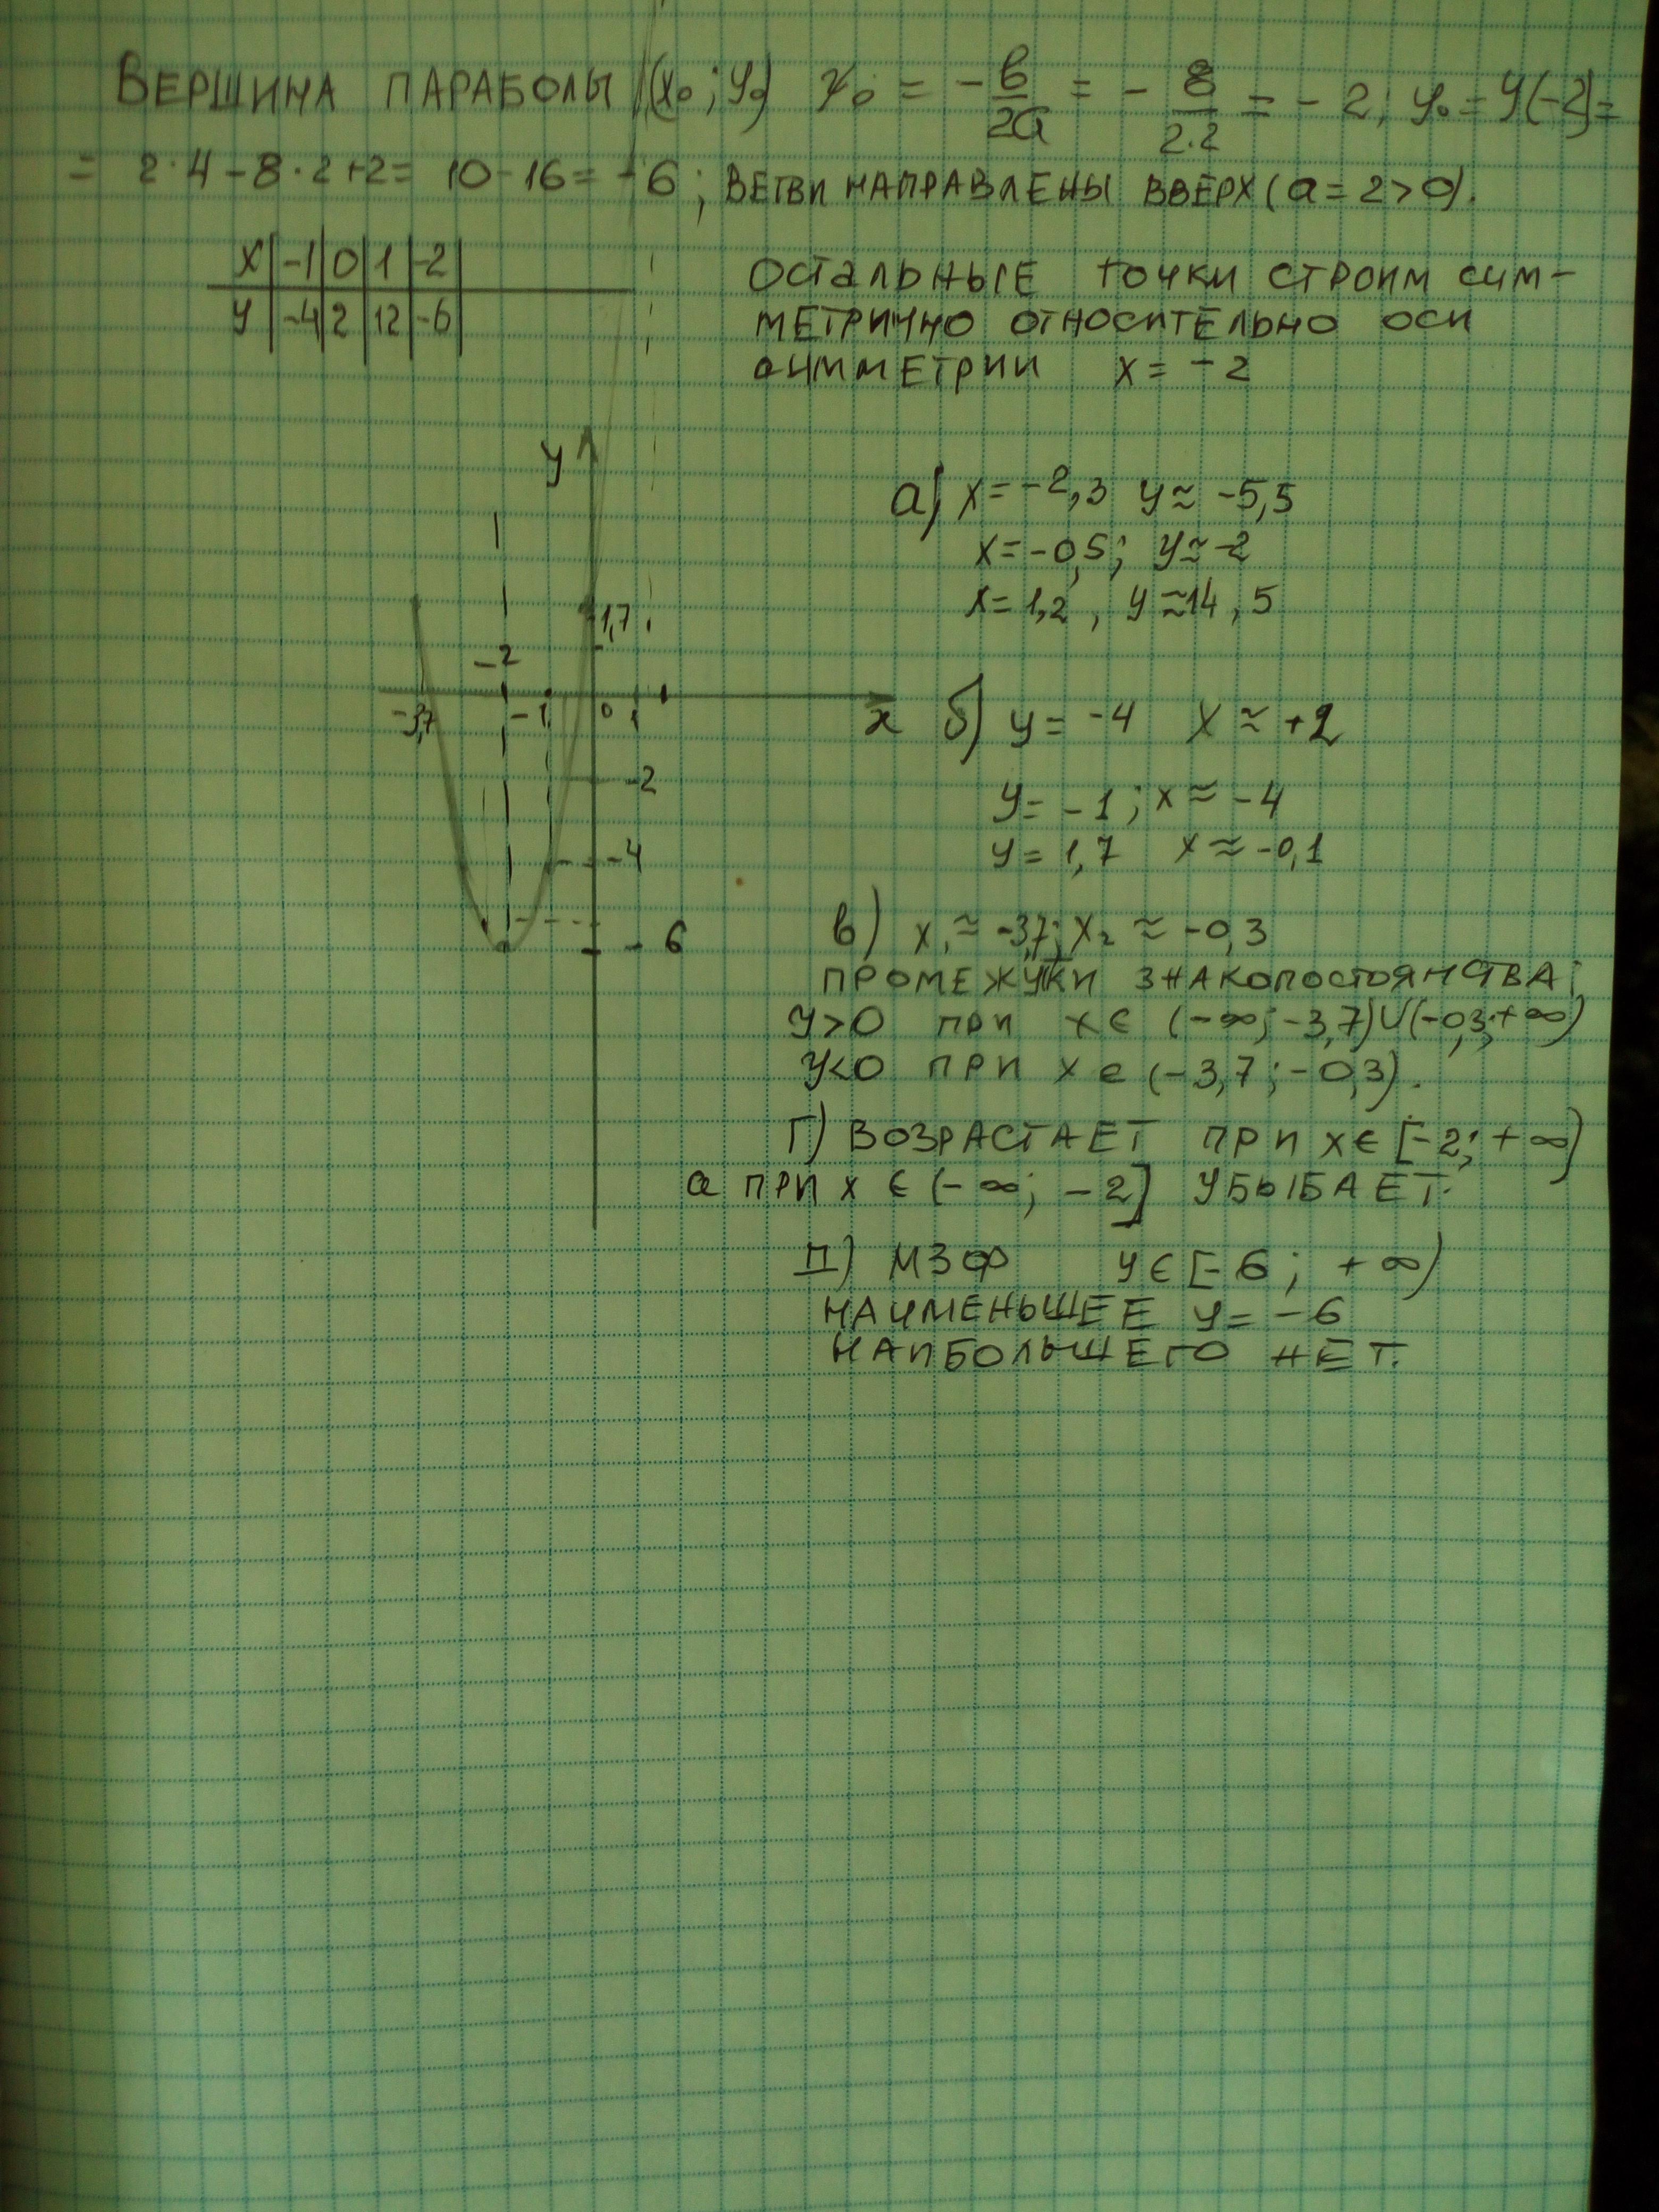 ВЕРШИНА ПАРАБОЛЫ (x₀; y₀) x₀ = -b/2a = -8/2·2 = -2; y₀ = y(-2) =
= 2·4-8·2+2= 10-16= -6; ВЕТВИ НАПРАВЛЕНЫ ВВЕРХ (a=2>0).
x | -1 | 0 | 1 | -2
y | -4 | 2 | 12 | -6
ОСТАЛЬНЫЕ ТОЧКИ СТРОИМ СИМ-
МЕТРИЧНО ОТНОСИТЕЛЬНО ОСИ
СИММЕТРИИ x = -2
y
1,7
-2
-3,7 -1 0 1 x
-2
-4
-6
а) x = -2,3 y ≈ -5,5
x = -0,5; y ≈ -2
x = 1,2, y ≈ 14,5
б) y = -4 x ≈ +2
y = -1; x ≈ -4
y = 1,7 x ≈ -0,1
в) x₁ ≈ -3,7; x₂ ≈ -0,3
ПРОМЕЖУТКИ ЗНАКОПОСТОЯНСТВА:
y>0 ПРИ x ∈ (-∞; -3,7)∪(-0,3;+∞)
y<0 ПРИ x ∈ (-3,7; -0,3).
Г) ВОЗРАСТАЕТ ПРИ x ∈ [-2; +∞)
а ПРИ x ∈ (-∞; -2] УБЫВАЕТ.
Д) МЗФ y ∈ [-6; +∞)
НАИМЕНЬШЕЕ y = -6
НАИБОЛЬШЕГО НЕТ.